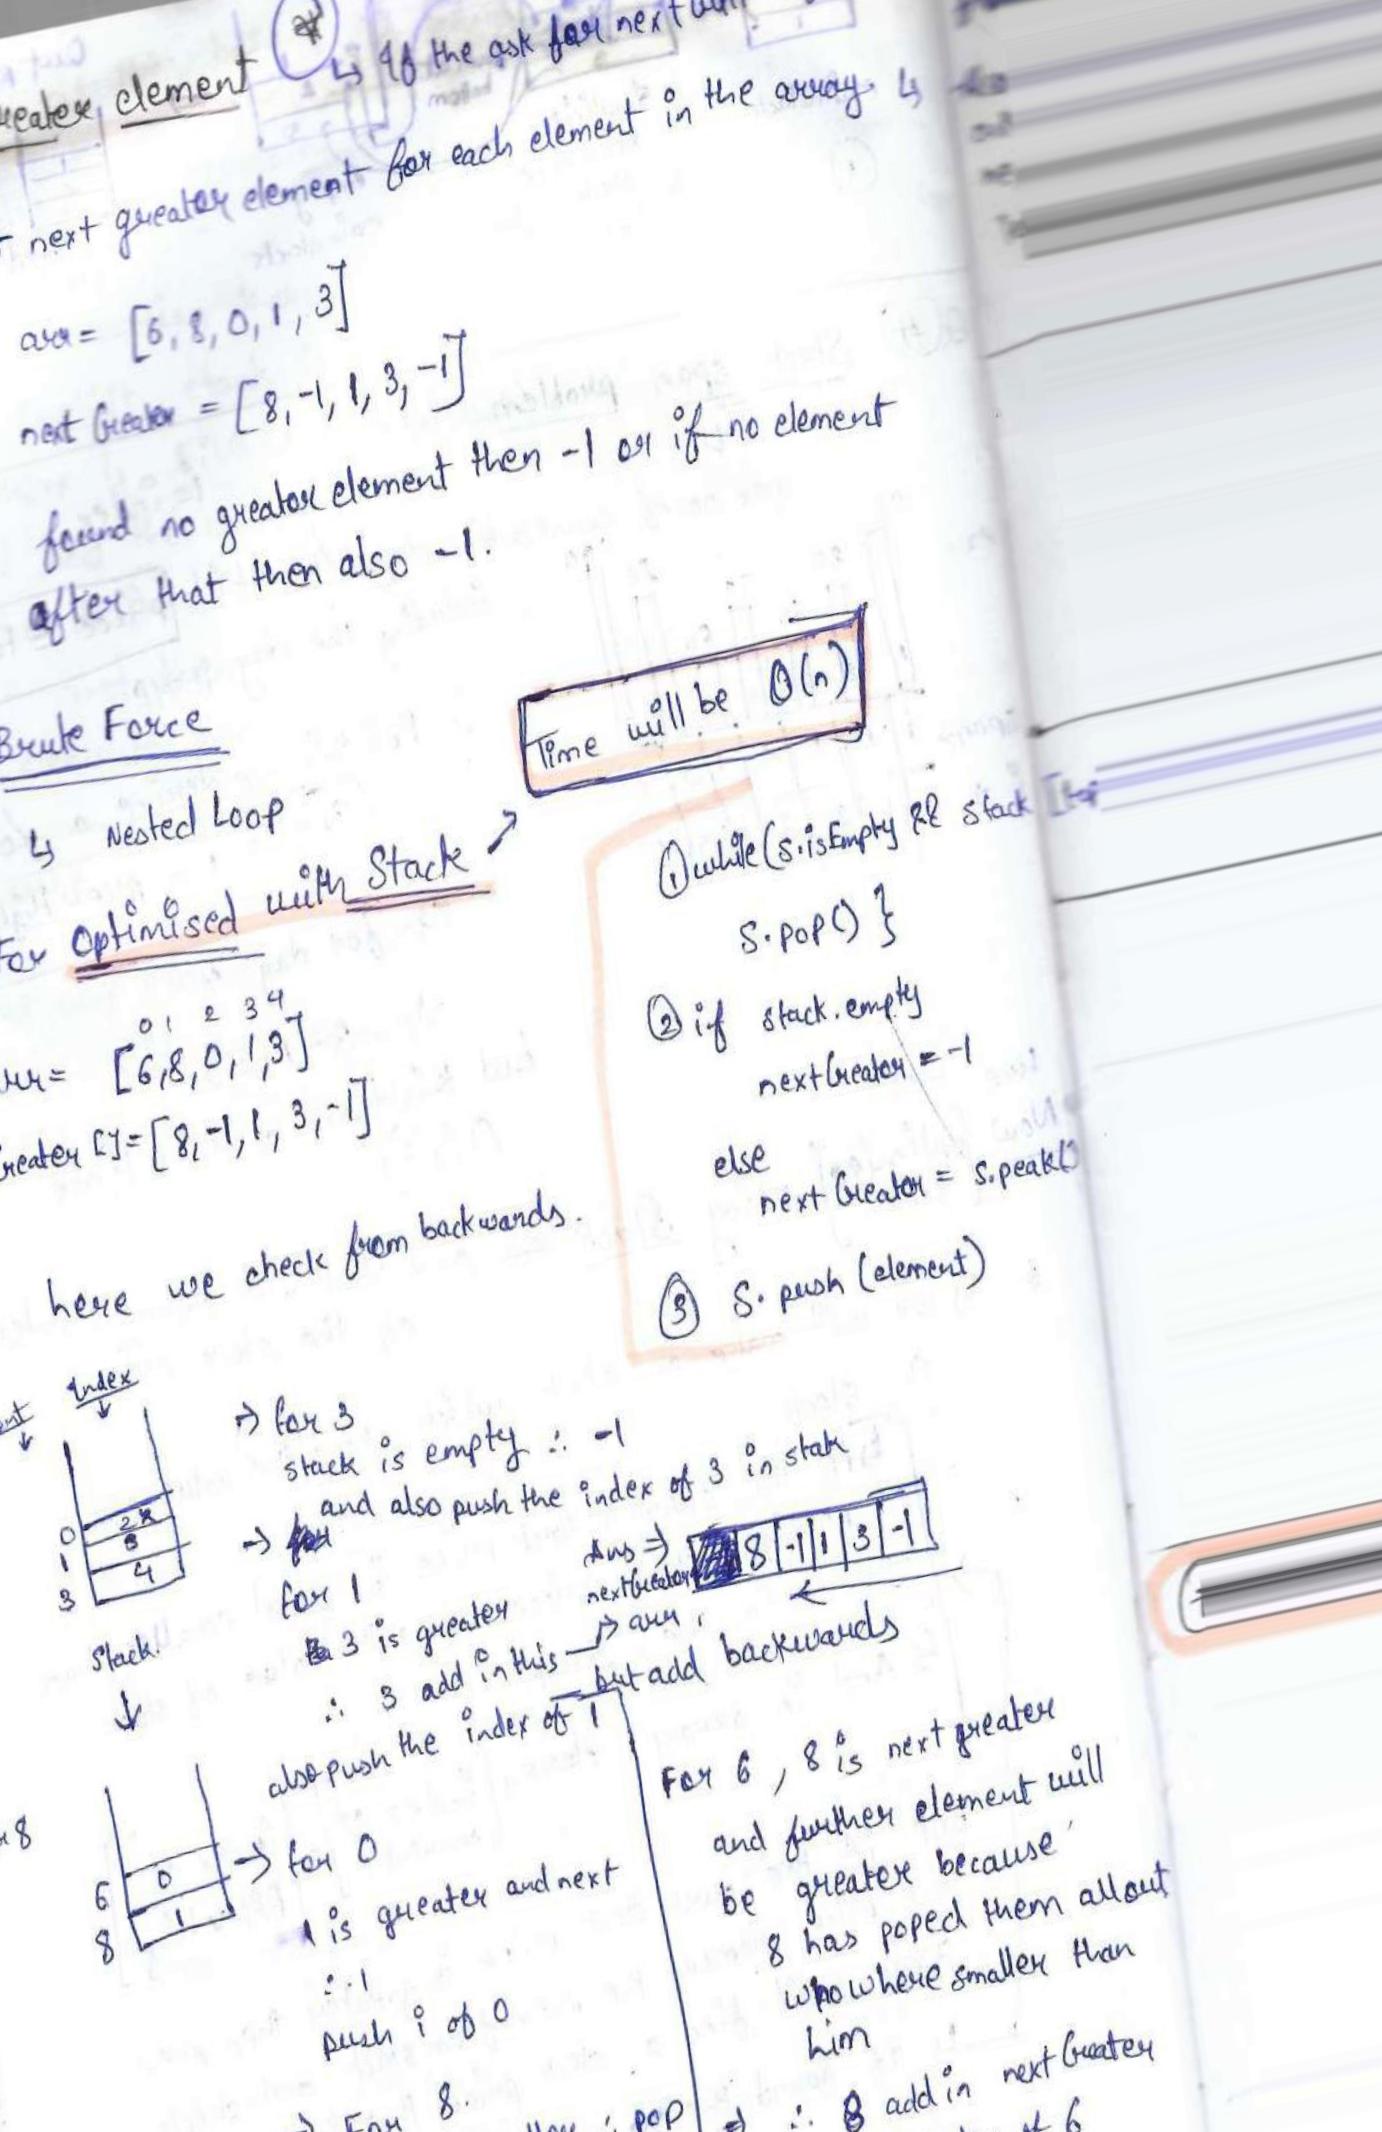 element
↳ If the ask for next
next greater element for each element in the array. ↳
arr = [6, 8, 0, 1, 3]
next Greater = [8, -1, 1, 3, -1]
found no greator element then -1 or if no element
after that then also -1.
Brute Force
↳ Nested Loop
For Optimised with Stack
Time will be O(n)
0 1 2 3 4
arr = [6, 8, 0, 1, 3]
Greater [] = [8, -1, 1, 3, -1]
here we check from backwards.
① while (s.isEmpty && stack
s.pop() }
② if stack.empty
nextGreator = -1
else
next Greator = s.peak()
③ S.push (element)
Index
0 2
1 3
3 4
Stack.
→ for 3
stack is empty ∴ -1
and also push the index of 3 in stak
→
for 1
3 is greater
∴ 3 add in this → arr,
but add backwards
also push the index of 1
Ans ⇒ 8 | -1 | 1 | 3 | -1
nextGreator
8
6 0
8 1
→ for 0
1 is greater and next
∴ 1
push i of 0
→ For 8.
pop
For 6, 8 is next greater
and further element will
be greater because
8 has poped them all out
who where smaller than
him
⇒ ∴ 8 add in next Greater
of 6